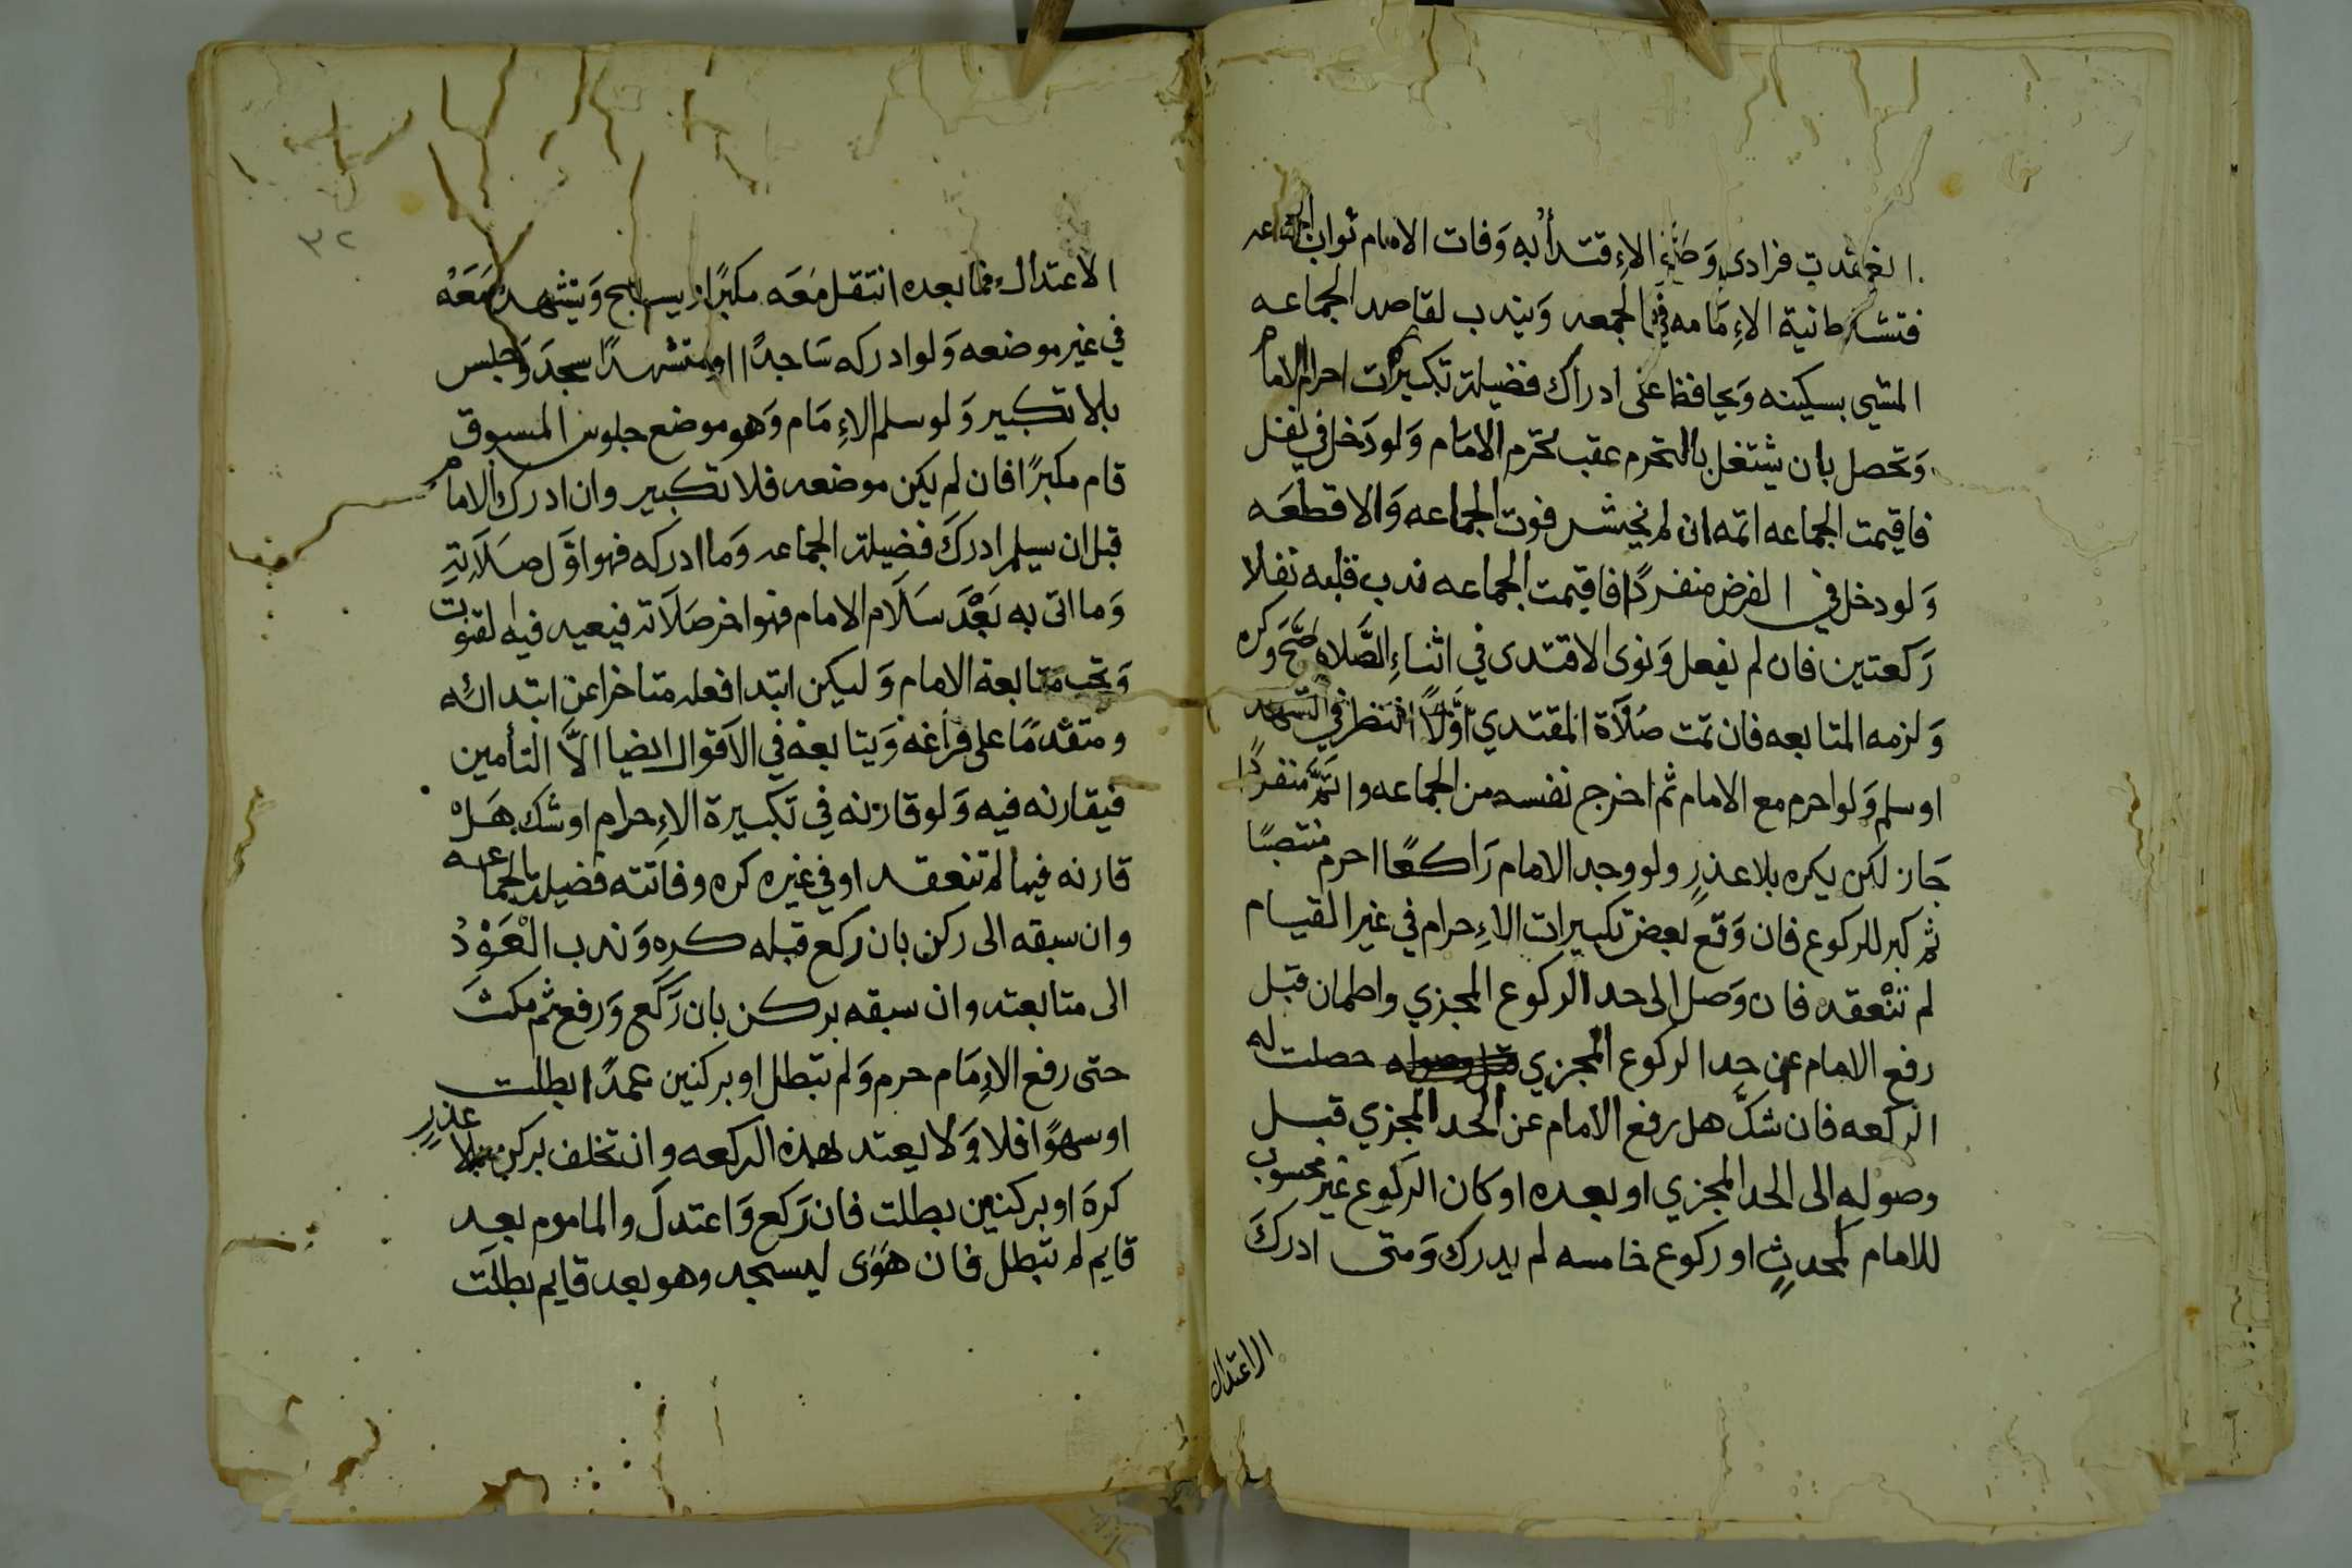 انعقدت فرادى وَصَحَّ الاِقتدأ به وَفات الامام ثواب الجماعه
فتشترط نية الاِمَامه في الجمعه وَيندب لقاصد الجماعه
المشي بسكينه وَيحافظ على ادراك فضيلة تكبيرات احرام الامام
وَتحصل بان يشتغل بالتحرم عقب تحرم الامَام وَلو دَخل في نفل
فاقيمت الجماعه اتمه ان لم يخش فوت الجماعه وَالا قطعَه
وَلو دخل في الفرض منفردًا فاقيمت الجماعه ندب قلبه نفلا
رَكعتين فان لم يفعل وَنوى الاقتدى في اثناءِ الصَّلاه صَحَّ وكره
وَلزمه المتابعه فان تمت صَلَاة المقتدي أوَّلًا انتظر في التشهد
او سلم وَلو احرم مع الامام ثم اخرج نفسه من الجماعه واتَمَّ منفردًا
جَاز لكن يكره بلا عذرٍ ولو وجد الامام رَاكعًا احرم منتصبًا
ثم كبر للركوع فان وَقع بعض تكبيرات الاِحرام في غير القيام
لم تنْعقد فان وَصل الى حد الركوع المجزي واطمان قبل
رفع الامام عن حد الركوع المجزي قبل وصوله حصلت له
الركعه فان شكَّ هل رفع الامام عن الحد المجزي قبل
وصوله الى الحد المجزي او بعده او كان الركوع غير محسوب
للامام لمحدثٍ او ركوع خامسه لم يدرك وَمتى ادركَ
الاعتدال
٣٢
الاعتدال فما بعده انتقل مَعَه مكبرًا ويسبح وَيتشهد مَعَهُ
في غير موضعه وَلو ادركه سَاجدًا او متشهدًا سجدَ وَجلس
بلا تكبير وَلو سلم الاِمَام وَهو موضع جلوس المسبوق
قام مكبرًا فان لم يكن موضعه فلا تكبير وان ادرك الامام
قبل ان يسلم ادركَ فضيلة الجماعه وَما ادركه فهو اوَّل صَلَاتهِ
وَما اتى به بَعْدَ سَلَام الامام فهو اخر صَلَاته فيعيد فيه القنوت
وَتجب متابعة الامام وَليكن ابتدا فعله متاخرا عن ابتدائه
ومتقدمًا على فراغه وَيتابعه في الاَقوال ايضا الاَّ التأمين
فيقارنه فيه وَلو قارنه في تكبيرة الاِحرام او شك هَلْ
قارنه فيها لم تنعقد او في غيره كره وفاتته فضيلة الجماعه
وان سبقه الى ركن بان ركع قبله كره وَندب الْعَوْدُ
الى متابعته وان سبقه بركن بان رَكَع وَرفع ثم مكثَ
حتى رفع الاِمَام حرم وَلم تبطل او بركنين عمدًا بطلت
او سهوًا فلا وَلا يعتد لهذه الركعه وان تخلف بركن بلا عذرٍ
كرهَ او بركنين بطلت فان رَكع وَاعتدلَ والماموم بعد
قايم لم تبطل فان هَوَى ليسجد وهو بعد قايم بطلَت